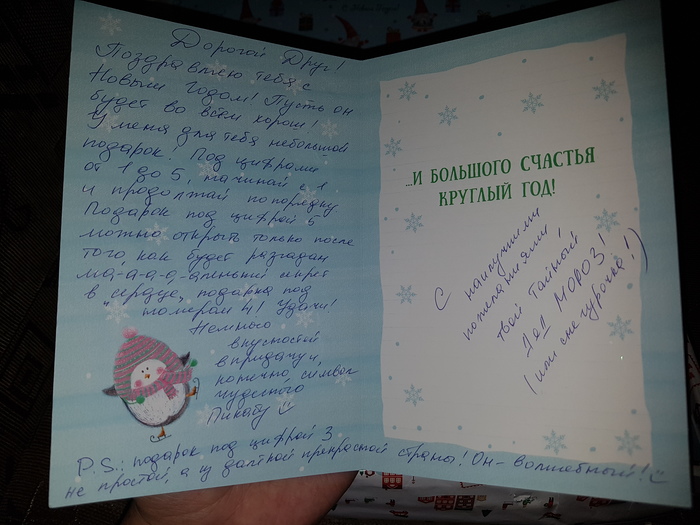 Дорогой Друг!
Поздравляю тебя с
Новым годом! Пусть он
будет во всём хорош!
У меня для тебя небольшой
подарок. Под цифрами
от 1 до 5, начинай с 1
и продолжай по порядку.
Подарок под цифрой 5
можно открыть только после
того, как будет разгадан
ма-а-а-а-аленький секрет
в "сердце" подарка под
номером 4! Удачи!
Немного
вкусностей
в придачу и,
конечно, символ
чудесного
Пикабу
P.S.: подарок под цифрой 3
не простой, а из далёкой прекрасной страны! Он - волшебный!
...И БОЛЬШОГО СЧАСТЬЯ
КРУГЛЫЙ ГОД!
С наилучшими
пожеланиями,
твой Тайный
ДЕД МОРОЗ!
(или снегурочка!)